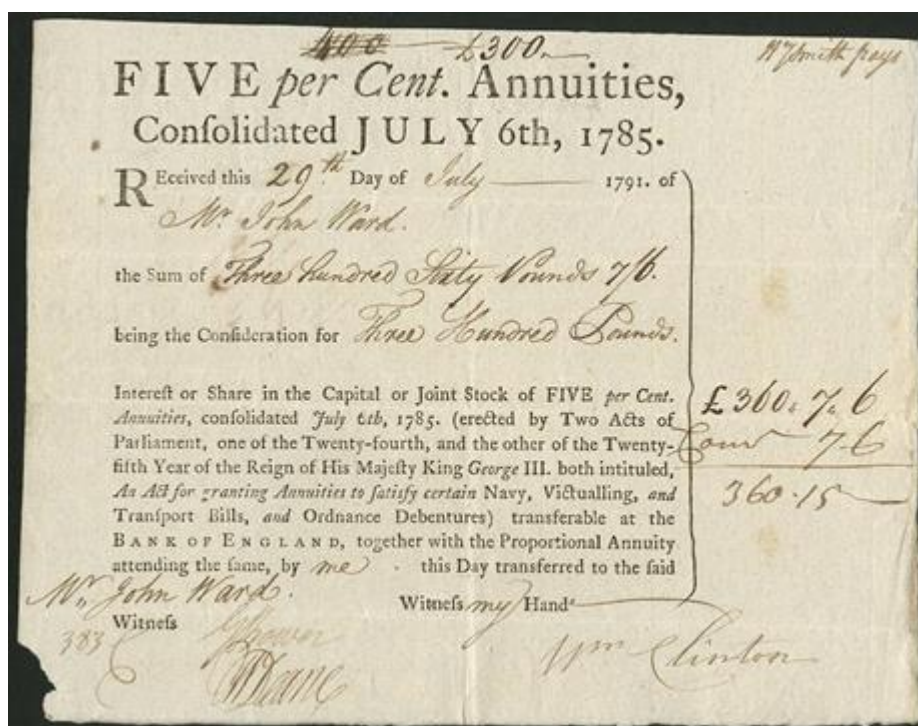 400 £300
W Smith pays
FIVE per Cent. Annuities,
Conſolidated JULY 6th, 1785.
REceived this 29.th Day of July 1791. of
Mr. John Ward.
the Sum of Three hundred Sixty Pounds 7/6.
being the Conſideration for Three Hundred Pounds.
Intereſt or Share in the Capital or Joint Stock of FIVE per Cent.
Annuities, conſolidated July 6th, 1785. (erected by Two Acts of
Parliament, one of the Twenty-fourth, and the other of the Twenty-
fifth Year of the Reign of His Majeſty King George III. both intituled,
An Act for granting Annuities to ſatisfy certain Navy, Victualling, and
Tranſport Bills, and Ordnance Debentures) transferable at the
BANK OF ENGLAND, together with the Proportional Annuity
attending the ſame, by me. this Day transferred to the ſaid
Mr. John Ward.
Witneſs my Hand
£360. 7. 6
7-6
360.15
Witneſs
383
Wm Clinton